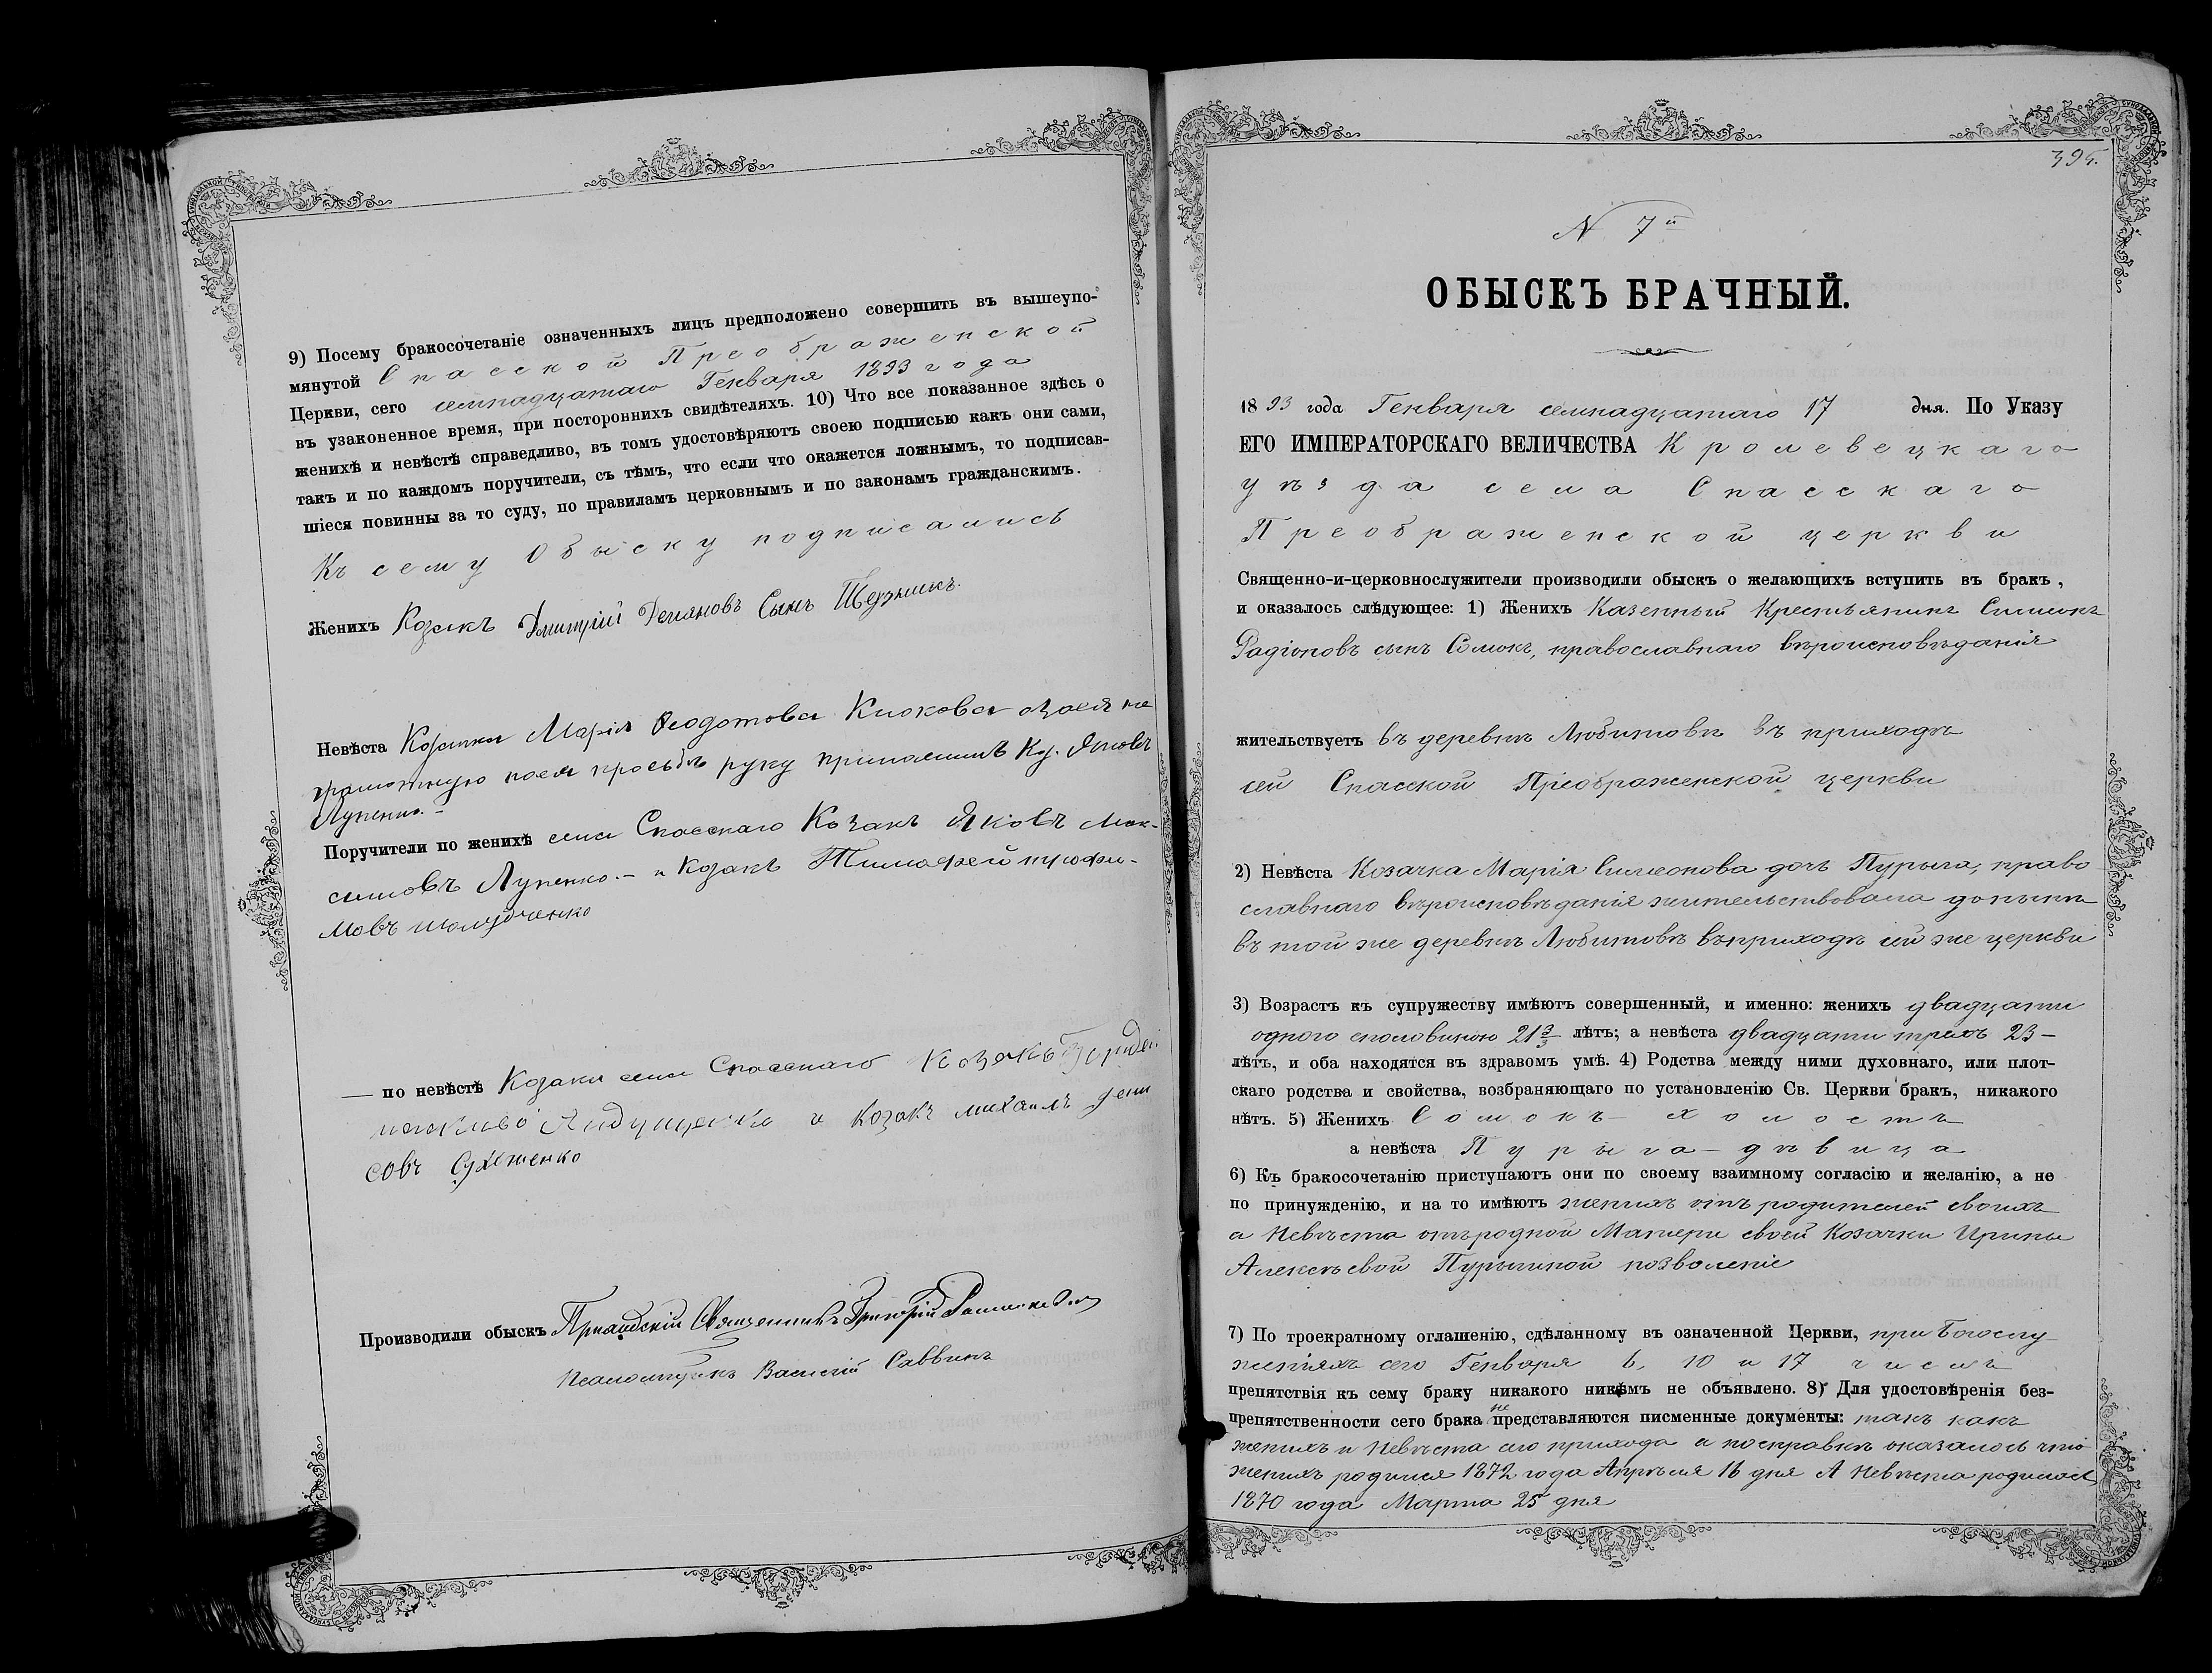 9) Посему бракосочетаніе означенныхъ лицъ предположено совершить въ вышеупо-
мянутой Спасской Преображенской
Церкви, сего семнадцатаго Генваря 1893 года
въ узаконенное время, при постороннихъ свидѣтеляхъ. 10) Что все показанное здѣсь о
женихѣ и невѣстѣ справедливо, въ томъ удостовѣряютъ своею подписью какъ они сами,
такъ и по каждомъ поручители, съ тѣмъ, что если что окажется ложнымъ, то подписав-
шіеся повинны за то суду, по правиламъ церковнымъ и по законамъ гражданскимъ.
Къ сему Обыску подписались
Женихъ Козакъ Дмитрій Демяновъ Сынъ
Невѣста Козачка Марія Ѳеодотова
грамотную поея просьбѣ руку Коз. Яковъ
Лупенко.-
Поручители по женихѣ села Спасскаго Козакъ Яковъ Мак-
симовъ Лупенко.- и Козакъ Тимофей трофи-
мовъ
— по невѣстѣ Козаки села Спасскаго Козакъ
и козакъ михаилъ дени
совъ
Производили обыскъ Приходскій Священникъ Григорій
Псаломщикъ Василій Саввинъ
395.
N 7й
ОБЫСКЪ БРАЧНЫЙ.
1893 года Генваря семнадцатаго 17 дня. По Указу
ЕГО ИМПЕРАТОРСКАГО ВЕЛИЧЕСТВА Кролевецкаго
уѣзда села Спасскаго
Преображенской церкви
Священно-и-церковнослужители производили обыскъ о желающихъ вступить въ бракъ,
и оказалось слѣдующее: 1) Женихъ Казенный Крестьянинъ Симеонъ
Радіоновъ сынъ Сомокъ, православнаго вѣроисповѣданія
жительствуетъ въ деревнѣ Любитовѣ въ приходѣ
сей Спасской Преображенской церкви
2) Невѣста Козачка Марія Симеонова дочь Пурыга, право
славнаго вѣроисповѣданія жительствовала донынѣ
въ той же деревнѣ Любитовѣ въ приходѣ сей же церкви
3) Возрастъ къ супружеству имѣютъ совершенный, и именно: женихъ двадцати
одного споловиною 21 лѣтъ; а невѣста двадцати трехъ 23 —
лѣтъ, и оба находятся въ здравомъ умѣ. 4) Родства между ними духовнаго, или плот-
скаго родства и свойства, возбраняющаго по установленію Св. Церкви бракъ, никакого
нѣтъ. 5) Женихъ Сомокъ – холостъ
а невѣста Пурыга – дѣвица
6) Къ бракосочетанію приступаютъ они по своему взаимному согласію и желанію, а не
по принужденію, и на то имѣютъ женихъ отъ родителей своихъ
а Невѣста отъ родной Матери своей Козачки Ирины
Алексѣевой Пурыгиной позволеніе
7) По троекратному оглашенію, сдѣланному въ означенной Церкви, при Богослу
женіяхъ сего Генваря 6, 10 и 17 числъ
препятствія къ сему браку никакого никѣмъ не объявлено. 8) Для удостовѣренія без-
препятственности сего брака не представляются писменные документы: такъ какъ
женихъ и Невѣста сего прихода и посправкѣ оказалось что
женихъ родился 1872 года Апрѣля 16 дня А Невѣста родилась
1870 года Марта 25 дня